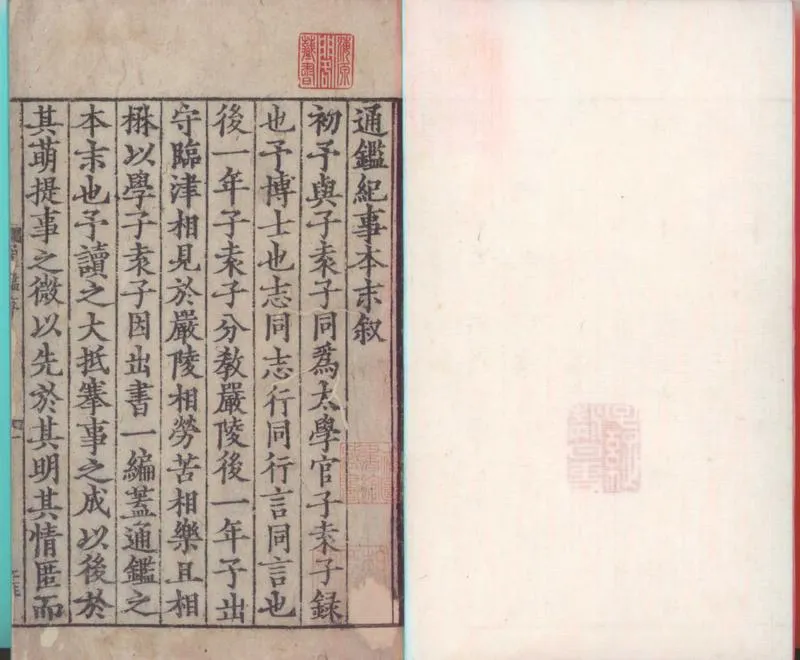 海源閣藏書
通鑑紀事本末叙
初予與子袁子同爲太學官子袁子録
也予博士也志同志行同行言同言也
後一年子袁子分敎嚴陵後一年予出
守臨津相見於嚴陵相勞苦相樂且相
楙以學子袁子因出書一編蓋通鑑之
本末也予讀之大抵搴事之成以後於
其萌提事之微以先於其明其情匿而